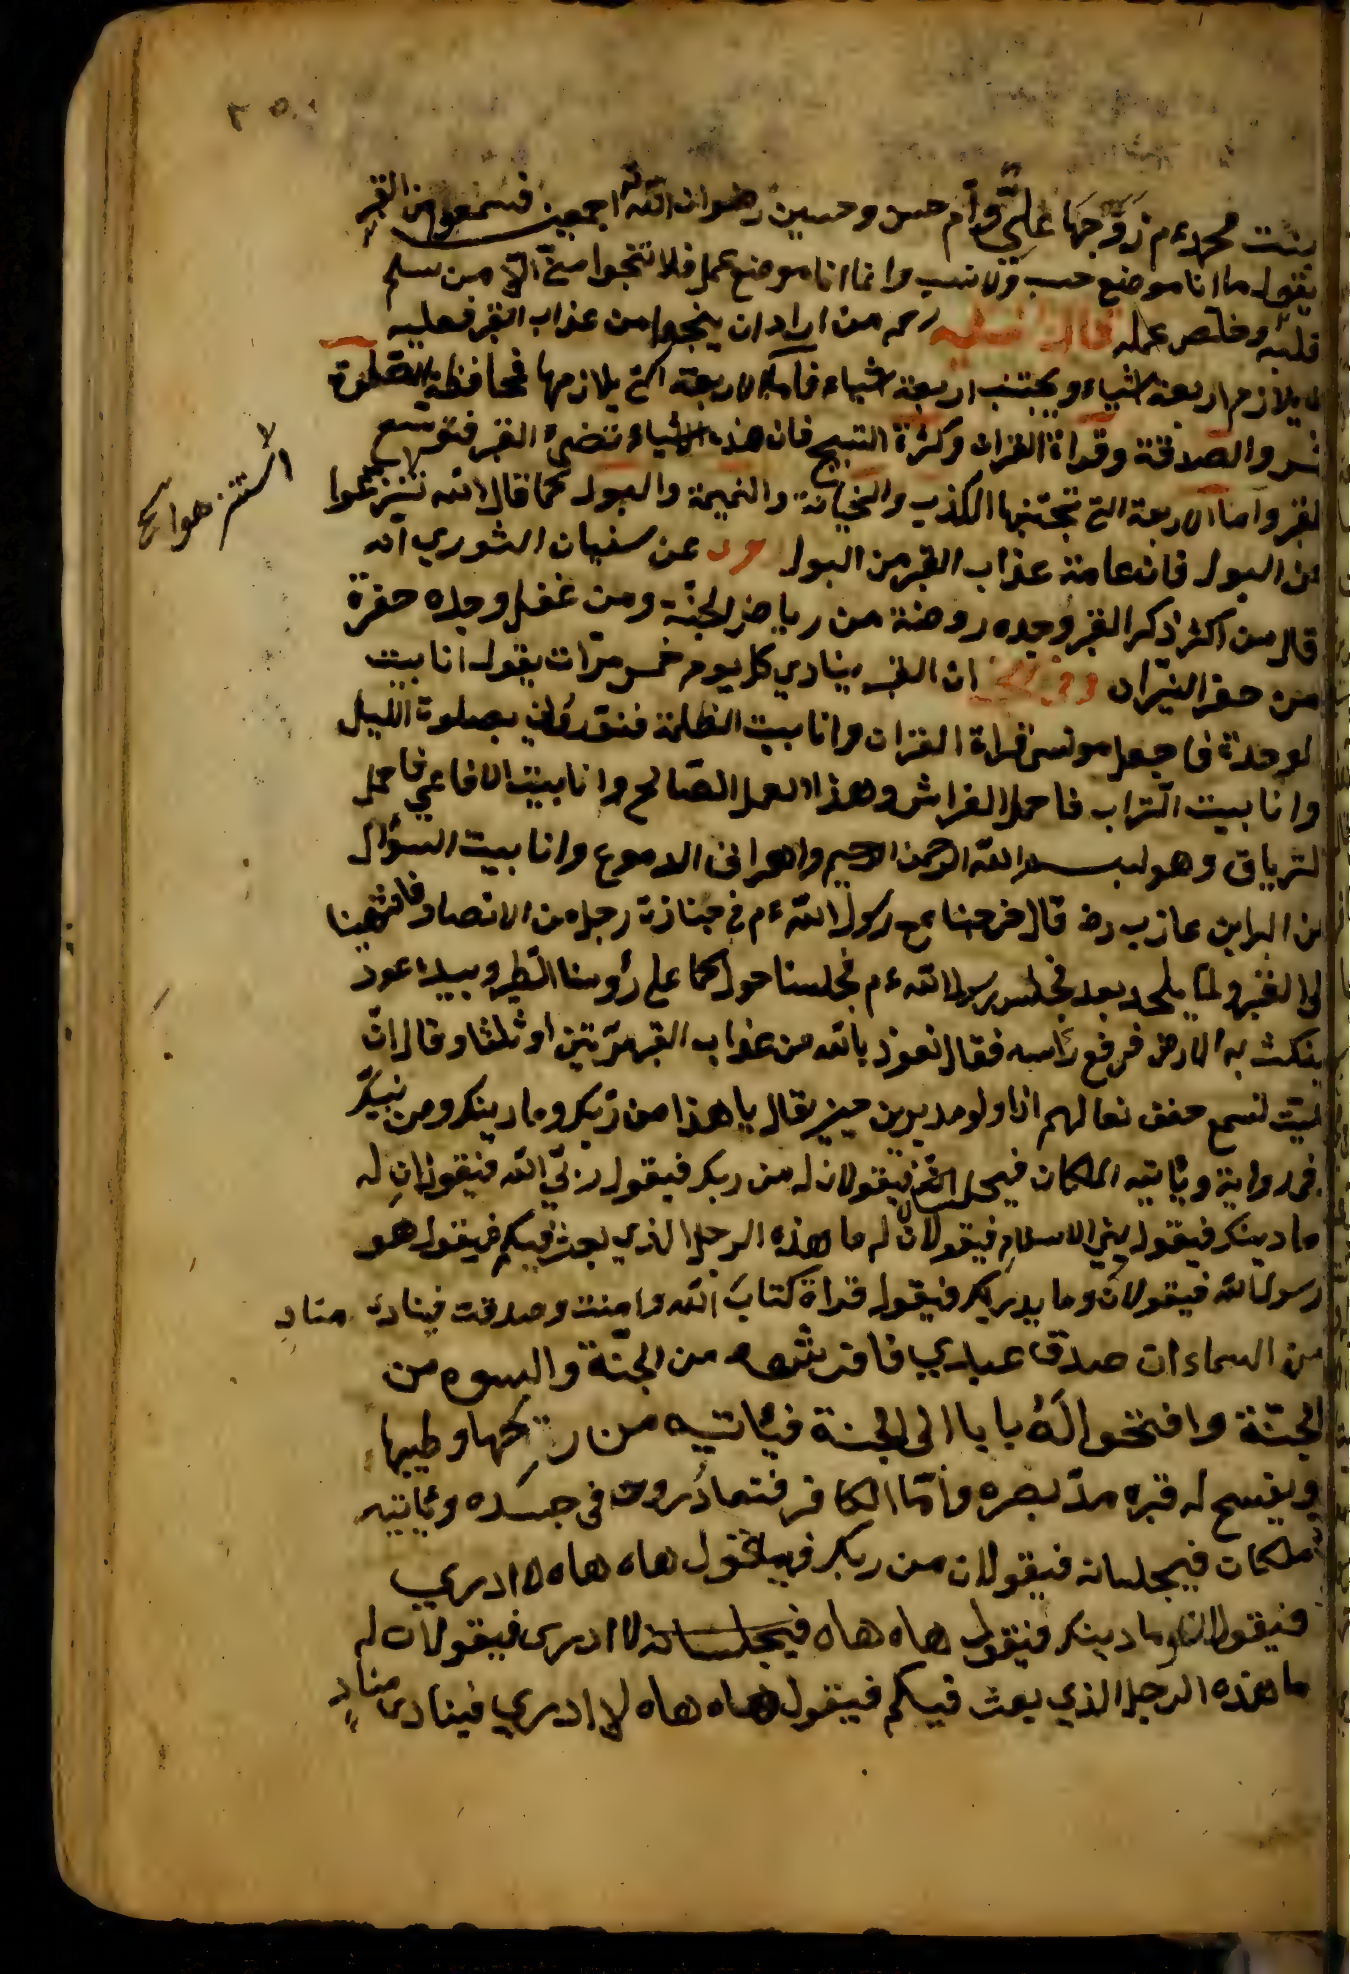 بنت محمد ءم زوجها علي وام حسن وحسين رضوان الله اجمعين فسمعوا من القبر
يقول ما انا موضع حسب ولا نسب وانما انا موضع عمل فلا تنجوا مني الا من سلم
قلبه وخلص عمله قال الفقيه رحمه من اراد ان ينجوا من عذاب القبر فعليه
يلازم اربعة اشياء ويجتنب اربعة اشياء فاما الاربعة التي يلازمها فمحافظة الصلوة
والصدقة وقراة القران وكثرة التسبيح فان هذه الاشياء تضيء القبر فتوسع
القبر واما الاربعة التي تجتنبها الكذب والخيانة والنميمة والبول كما قال الله تنزهوا
من البول فان عامة عذاب القبر من البول عن سفيان الثوري انه
قال من اكثر ذكر القبر وجده روضة من رياض الجنة ومن غفل وجده حفرة
من حفر النيران وفي الخبر ان القبر ينادي كل يوم خمس مرات يقول انا بيت
الوحدة فاجعل مونسي قراة القران وانا بيت الظلمة فنورني بصلوة الليل
وانا بيت التراب فاحمل الفراش وهذا العمل الصالح وانا بيت الافاعي فاحمل
الترياق وهو بسم الله الرحمن الرحيم واهراق الدموع وانا بيت السؤال
عن البرا بن عازب رضه قال خرجنا مع رسول الله ءم في جنازة رجل من الانصار فانتهينا
الى القبر ولما يلحد بعد فجلس رسول الله ءم فجلسنا حوله كما على رؤسنا الطير وبيده عود
ينكث به الارض فرفع راسه فقال نعوذ بالله من عذاب القبر مرتين او ثلثا وقال ان
الميت لسمع خفق نعالهم اذا ولو مدبرين حين يقال يا هذا من ربك وما دينك ومن نبيك
في رواية وياتيه الملكان فيجلسانه فيقولان له من ربك فيقول ربي الله فيقولان له
ما دينك فيقول ديني الاسلام فيقولان له ما هذه الرجل الذي بعث فيكم فيقول هو
رسول الله فيقولان وما يدريك فيقول قراة كتاب الله وامنت وصدقت فينادي مناد
من السماء ان صدق عبادي فافرشوه من الجنة والبسوه من
الجنة وافتحوا له بابا الى الجنة فياتيه من ريحها وطيبها
ويفسح له قبره مد بصره واما الكافر فتعاد روحه في جسده وياتيه
ملكان فيجلسانه فيقولان من ربك فيقول هاه هاه لا ادري
فيقولان وما دينك فيقول هاه هاه فيجلسانه لا ادري فيقولان له
ما هذه الرجل الذي بعث فيكم فيقول هاه هاه لا ادري فينادي مناد